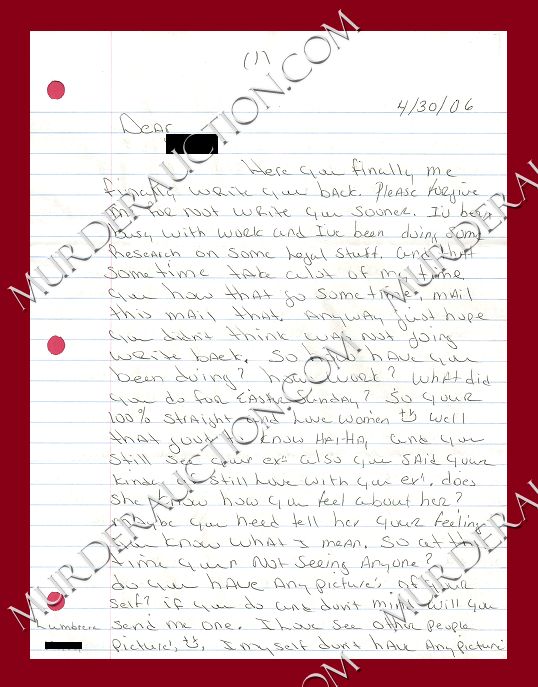 (1)
4/30/06
Dear
Here you finally me
finally write you back. Please forgive
for not write you sooner. I'v been
busy with work and I've been doing some
research on some legal stuff. and that
sometime take alot of my time.
you how that go sometime, mail
this mail that. Anyway just hope
you didn't think was not going
write back. So how have you
been doing? how work? What did
you do for Easter Sunday? So your
100% straight and love women Well
that good to know HA-HA, and you
still see your ex's also you said your
kinda still love with you ex', does
she know how you feel about her?
you need tell her your feeling
you know what I mean. So at this
time your not seeing Anyone?
do you have Any picture's of your
self? if you do and don't mind will you
send me one. I love see other people
Lumbrera
picture's, I myself don't have Any picture
MURDERAUCTION.COM